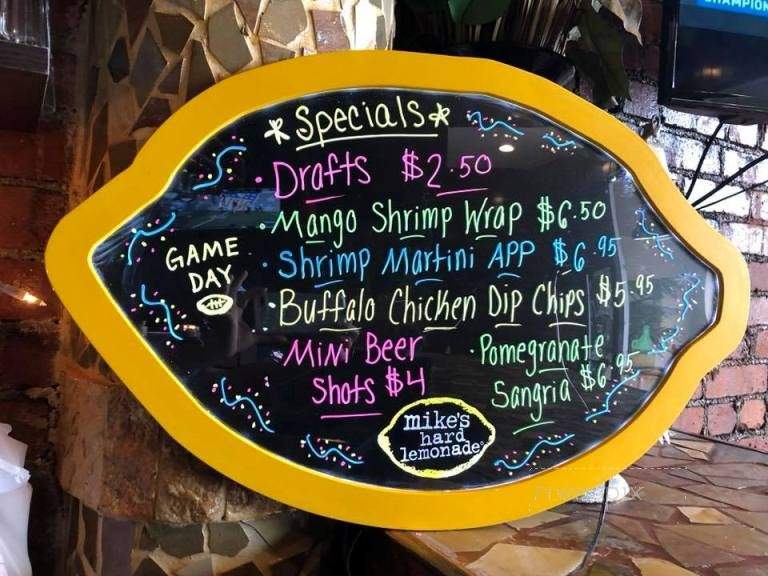 CHAMPION
*Specials*
GAME
DAY
· Drafts $2.50
· Mango Shrimp Wrap $6.50
· Shrimp Martini APP $6.95
· Buffalo Chicken Dip Chips $5.95
Mini Beer
Shots $4
· Pomegranate
Sangria $6.95
mike's
hard
lemonade®